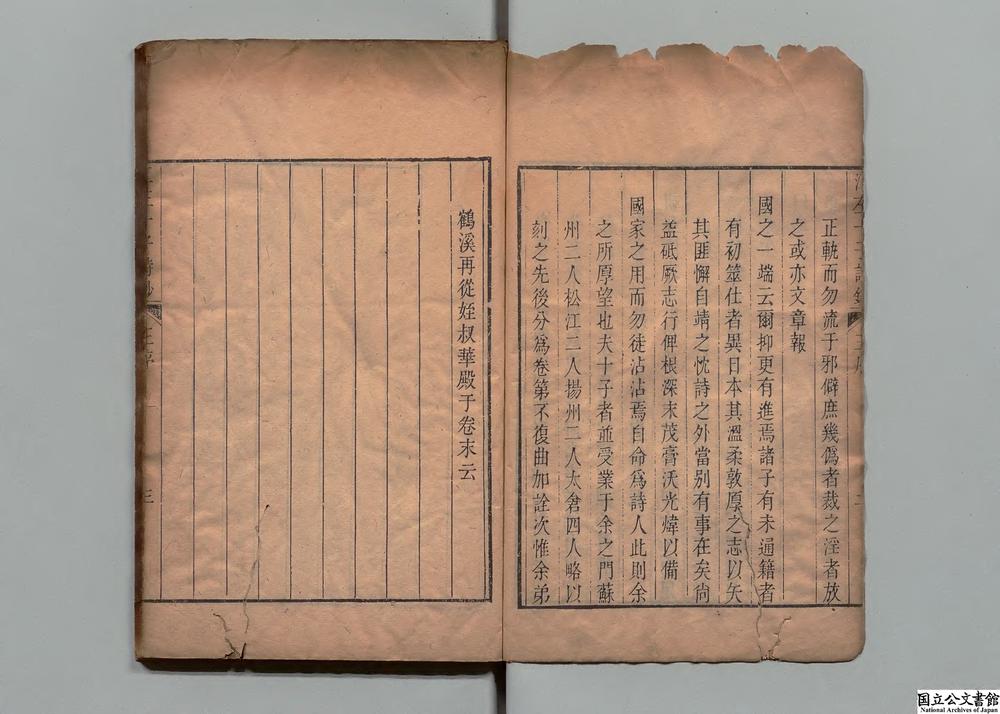 正軌而勿流于邪僻庶幾僞者裁之淫者放
之或亦文章報
國之一端云爾抑更有進焉諸子有未通籍者
有初筮仕者異日本其溫柔敦厚之志以矢
其匪懈自靖之忱詩之外當別有事在矣尚
益砥厥志行俾根深末茂膏沃光煒以備
國家之用而勿徒沾沾焉自命爲詩人此則余
之所厚望也夫十子者並受業于余之門蘇
州二人松江二人揚州二人太倉四人略以
刻之先後分爲卷第不復曲加詮次惟余弟
鶴溪再從姪叔華殿于卷末云
三
国立公文書館
National Archives of Japan